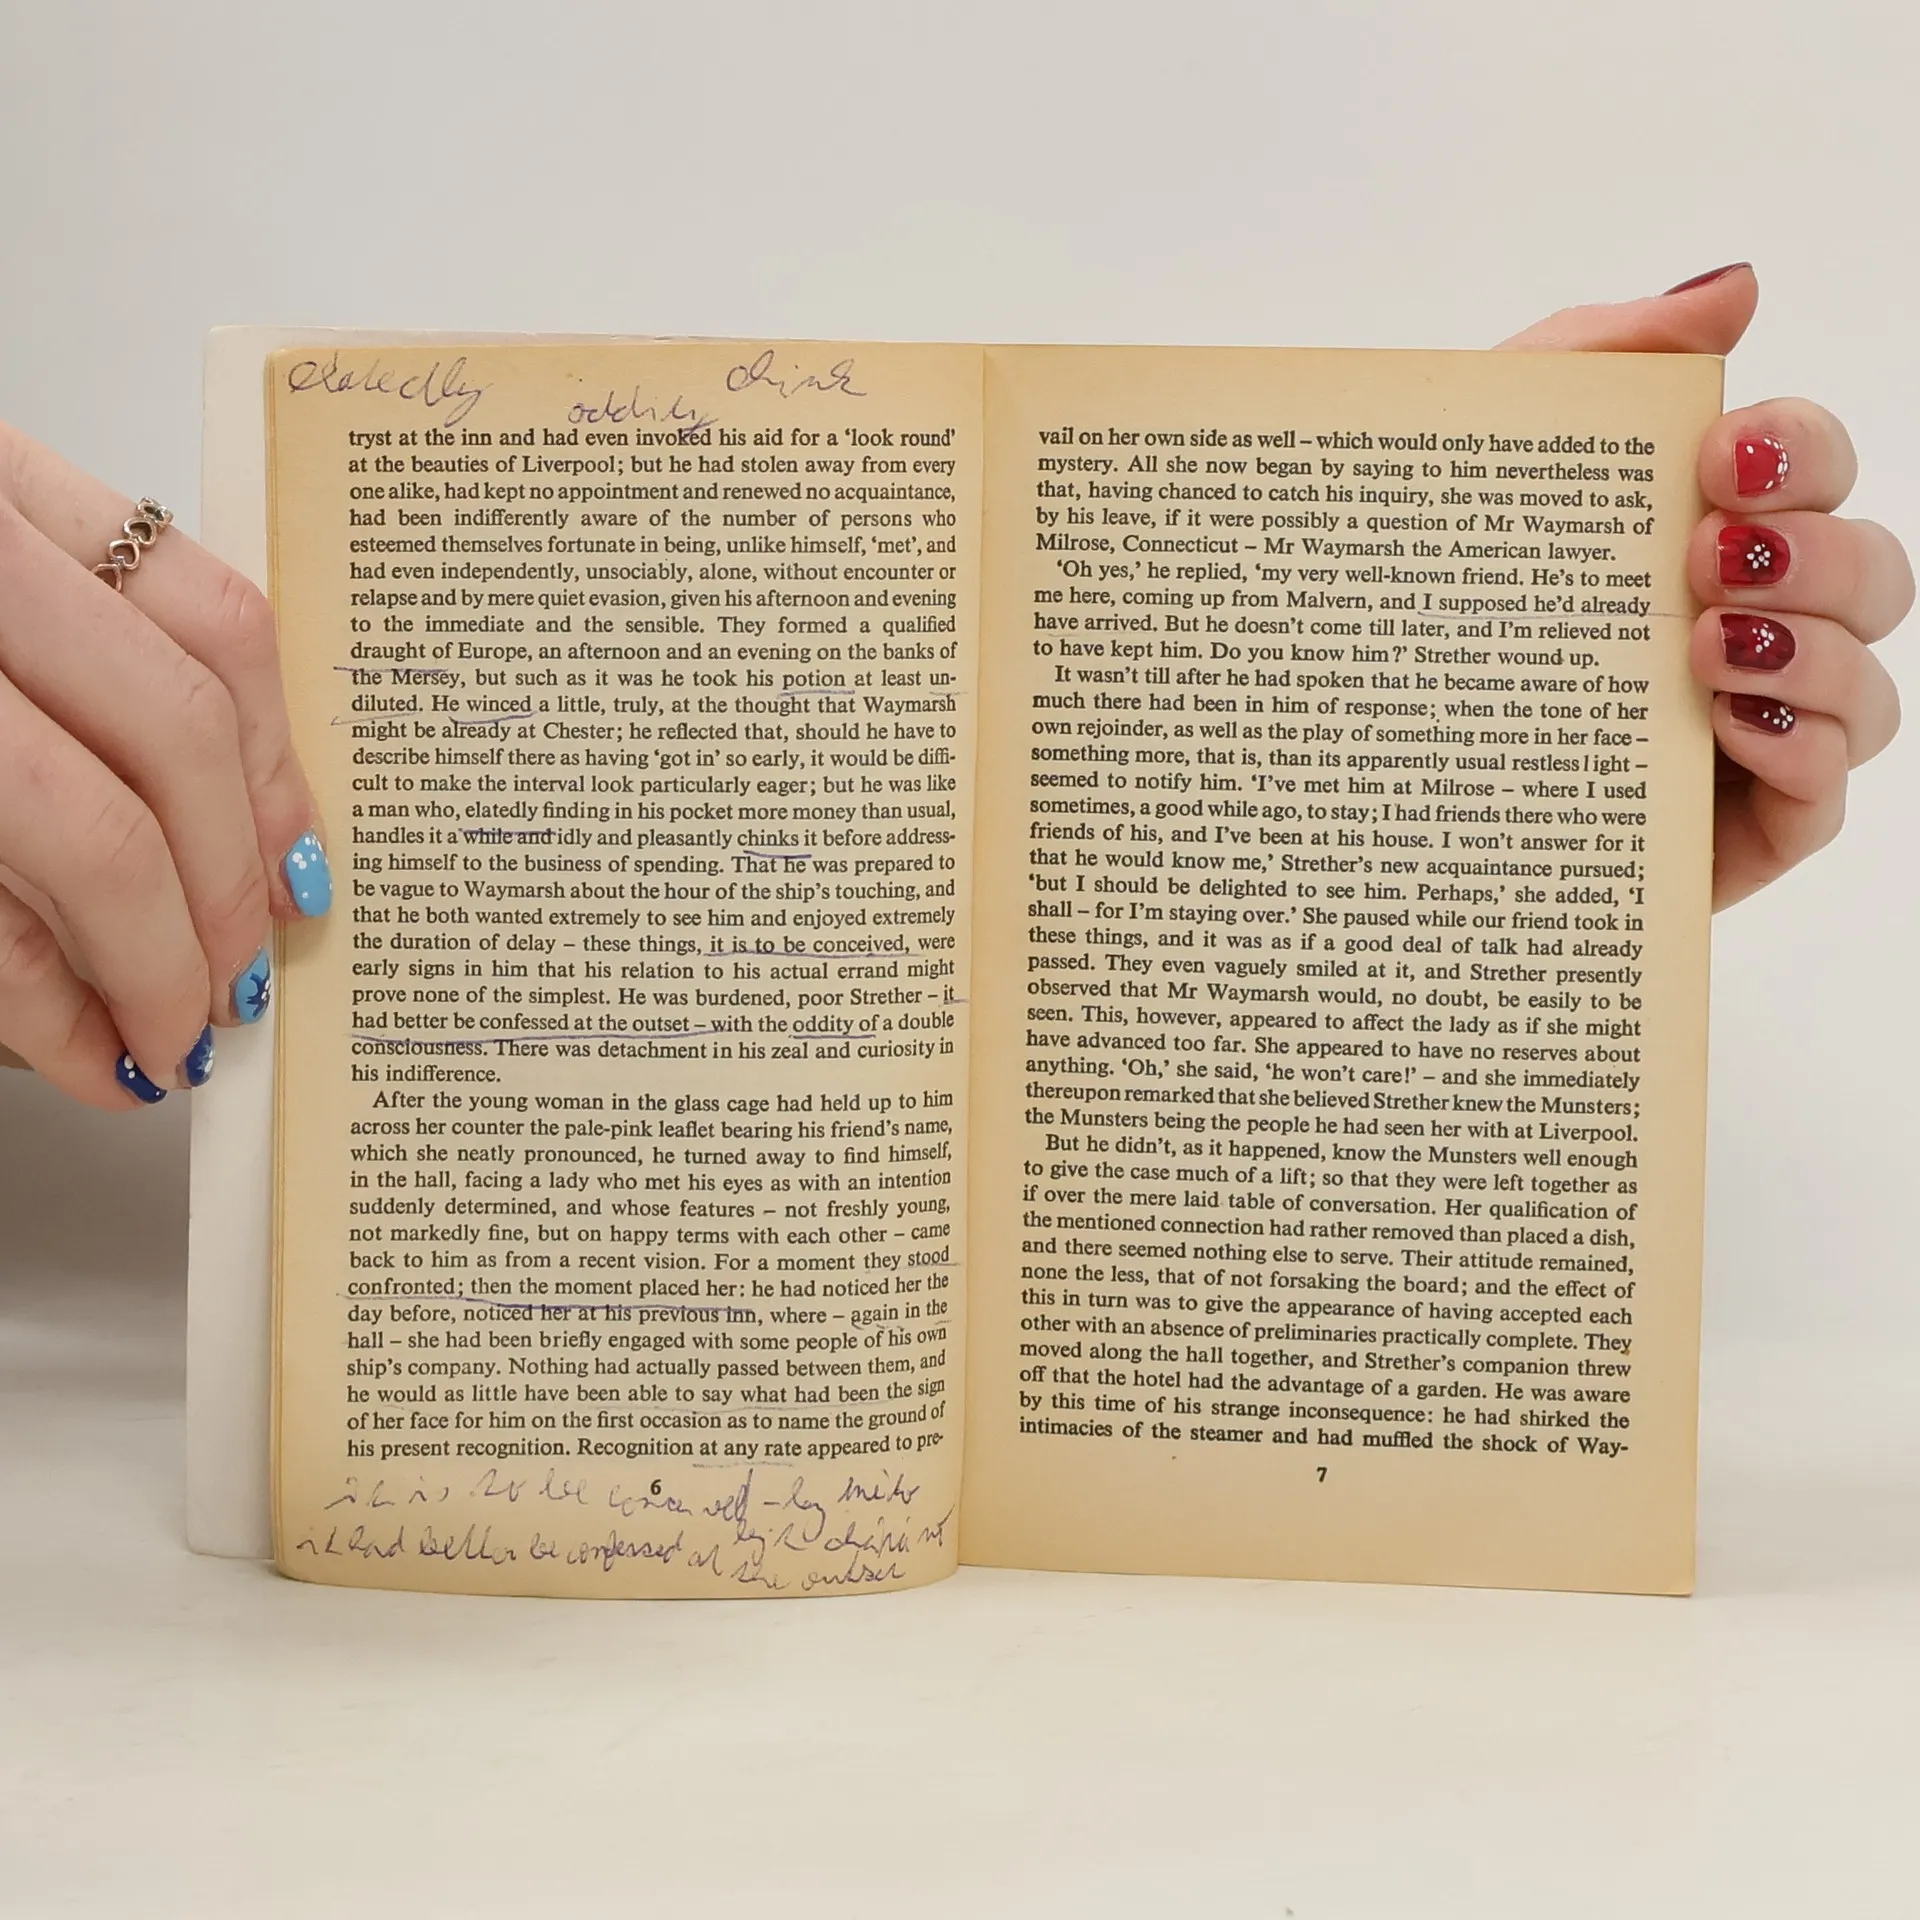 elatedly
oddity
chink
tryst at the inn and had even invoked his aid for a ‘look round’
at the beauties of Liverpool; but he had stolen away from every
one alike, had kept no appointment and renewed no acquaintance,
had been indifferently aware of the number of persons who
esteemed themselves fortunate in being, unlike himself, ‘met’, and
had even independently, unsociably, alone, without encounter or
relapse and by mere quiet evasion, given his afternoon and evening
to the immediate and the sensible. They formed a qualified
draught of Europe, an afternoon and an evening on the banks of
the Mersey, but such as it was he took his potion at least un-
diluted. He winced a little, truly, at the thought that Waymarsh
might be already at Chester; he reflected that, should he have to
describe himself there as having ‘got in’ so early, it would be diffi-
cult to make the interval look particularly eager; but he was like
a man who, elatedly finding in his pocket more money than usual,
handles it a while and idly and pleasantly chinks it before address-
ing himself to the business of spending. That he was prepared to
be vague to Waymarsh about the hour of the ship’s touching, and
that he both wanted extremely to see him and enjoyed extremely
the duration of delay – these things, it is to be conceived, were
early signs in him that his relation to his actual errand might
prove none of the simplest. He was burdened, poor Strether – it
had better be confessed at the outset – with the oddity of a double
consciousness. There was detachment in his zeal and curiosity in
his indifference.
After the young woman in the glass cage had held up to him
across her counter the pale-pink leaflet bearing his friend’s name,
which she neatly pronounced, he turned away to find himself,
in the hall, facing a lady who met his eyes as with an intention
suddenly determined, and whose features – not freshly young,
not markedly fine, but on happy terms with each other – came
back to him as from a recent vision. For a moment they stood
confronted; then the moment placed her: he had noticed her the
day before, noticed her at his previous inn, where – again in the
hall – she had been briefly engaged with some people of his own
ship’s company. Nothing had actually passed between them, and
he would as little have been able to say what had been the sign
of her face for him on the first occasion as to name the ground of
his present recognition. Recognition at any rate appeared to pre-
6
it is to be conceived
it had better be confessed at
the outset
vail on her own side as well – which would only have added to the
mystery. All she now began by saying to him nevertheless was
that, having chanced to catch his inquiry, she was moved to ask,
by his leave, if it were possibly a question of Mr Waymarsh of
Milrose, Connecticut – Mr Waymarsh the American lawyer.
‘Oh yes,’ he replied, ‘my very well-known friend. He’s to meet
me here, coming up from Malvern, and I supposed he’d already
have arrived. But he doesn’t come till later, and I’m relieved not
to have kept him. Do you know him?’ Strether wound up.
It wasn’t till after he had spoken that he became aware of how
much there had been in him of response; when the tone of her
own rejoinder, as well as the play of something more in her face –
something more, that is, than its apparently usual restless light –
seemed to notify him. ‘I’ve met him at Milrose – where I used
sometimes, a good while ago, to stay; I had friends there who were
friends of his, and I’ve been at his house. I won’t answer for it
that he would know me,’ Strether’s new acquaintance pursued;
‘but I should be delighted to see him. Perhaps,’ she added, ‘I
shall – for I’m staying over.’ She paused while our friend took in
these things, and it was as if a good deal of talk had already
passed. They even vaguely smiled at it, and Strether presently
observed that Mr Waymarsh would, no doubt, be easily to be
seen. This, however, appeared to affect the lady as if she might
have advanced too far. She appeared to have no reserves about
anything. ‘Oh,’ she said, ‘he won’t care!’ – and she immediately
thereupon remarked that she believed Strether knew the Munsters;
the Munsters being the people he had seen her with at Liverpool.
But he didn’t, as it happened, know the Munsters well enough
to give the case much of a lift; so that they were left together as
if over the mere laid table of conversation. Her qualification of
the mentioned connection had rather removed than placed a dish,
and there seemed nothing else to serve. Their attitude remained,
none the less, that of not forsaking the board; and the effect of
this in turn was to give the appearance of having accepted each
other with an absence of preliminaries practically complete. They
moved along the hall together, and Strether’s companion threw
off that the hotel had the advantage of a garden. He was aware
by this time of his strange inconsequence: he had shirked the
intimacies of the steamer and had muffled the shock of Way-
7